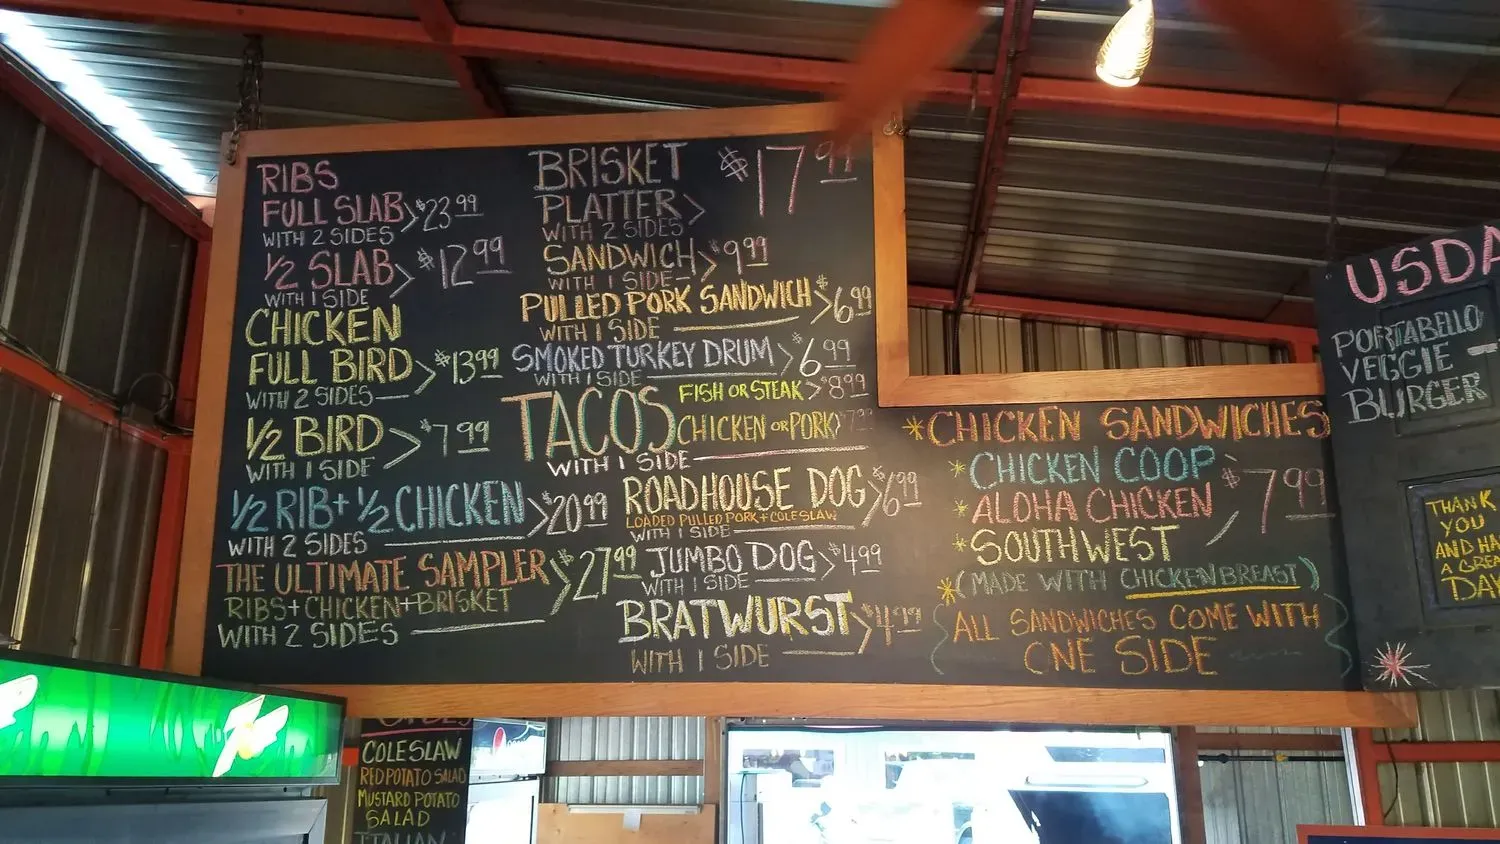 RIBS
FULL SLAB > $23.99
WITH 2 SIDES
1/2 SLAB > $12.99
WITH 1 SIDE
CHICKEN
FULL BIRD > $13.99
WITH 2 SIDES
1/2 BIRD > $7.99
WITH 1 SIDE
1/2 RIB + 1/2 CHICKEN > $20.99
WITH 2 SIDES
THE ULTIMATE SAMPLER > $27.99
RIBS + CHICKEN + BRISKET
WITH 2 SIDES
BRISKET $17.99
PLATTER >
WITH 2 SIDES
SANDWICH > $9.99
WITH 1 SIDE
PULLED PORK SANDWICH > $6.99
WITH 1 SIDE
SMOKED TURKEY DRUM > $6.99
WITH 1 SIDE
TACOS FISH OR STEAK > $8.99
CHICKEN OR PORK >
WITH 1 SIDE
ROADHOUSE DOG > $6.99
LOADED PULLED PORK + COLESLAW
WITH 1 SIDE
JUMBO DOG > $4.99
WITH 1 SIDE
BRATWURST > $4.99
WITH 1 SIDE
* CHICKEN SANDWICHES
* CHICKEN COOP
* ALOHA CHICKEN $7.99
* SOUTHWEST
* (MADE WITH CHICKEN BREAST)
ALL SANDWICHES COME WITH
ONE SIDE
USDA
PORTABELLO
VEGGIE
BURGER
THANK
YOU
AND HA
A GREA
DAY
7UP
COLESLAW
RED POTATO SALAD
MUSTARD POTATO
SALAD
ITALIAN